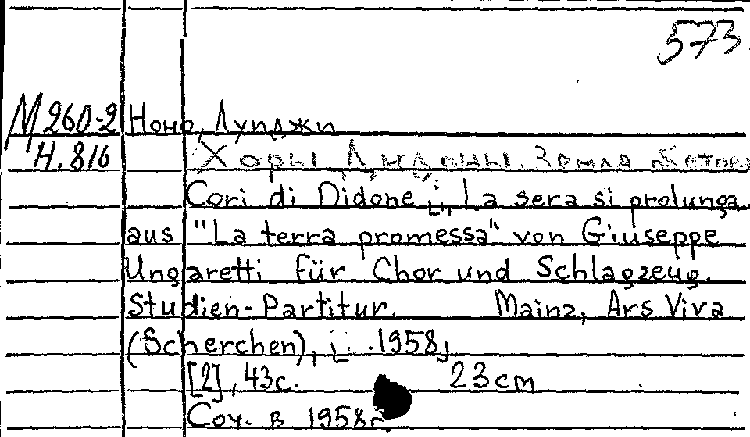 573
М260-2 Ноно, Луиджи
Н.816 Хоры Дидоны. Земля
Cori di Didone [:], La sera si prolunga
aus "La terra promessa" von Giuseppe
Ungaretti für Chor und Schlagzeug.
Studien-Partitur. Mainz, Ars Viva
(Scherchen), [: .1958]
[2], 43с. 23cm
Соч. в 1958г.